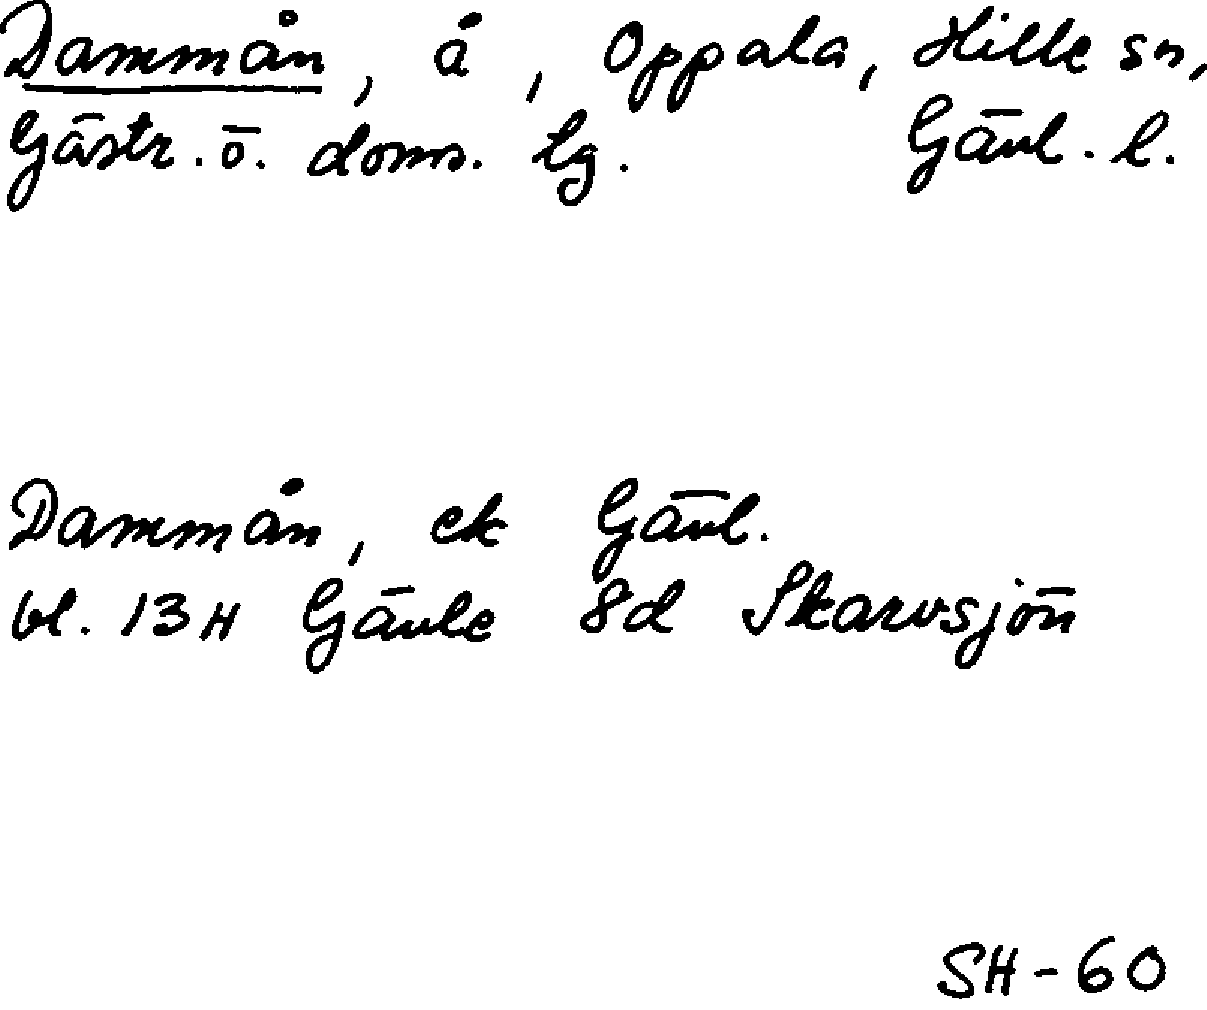 Dammån, å, Oppala, Hille sn,
Gästr. ö. doms. lg. Gävl. l.
Dammån, ek Gävl.
bl. 13H Gävle 8d Skarvsjön
SH-60